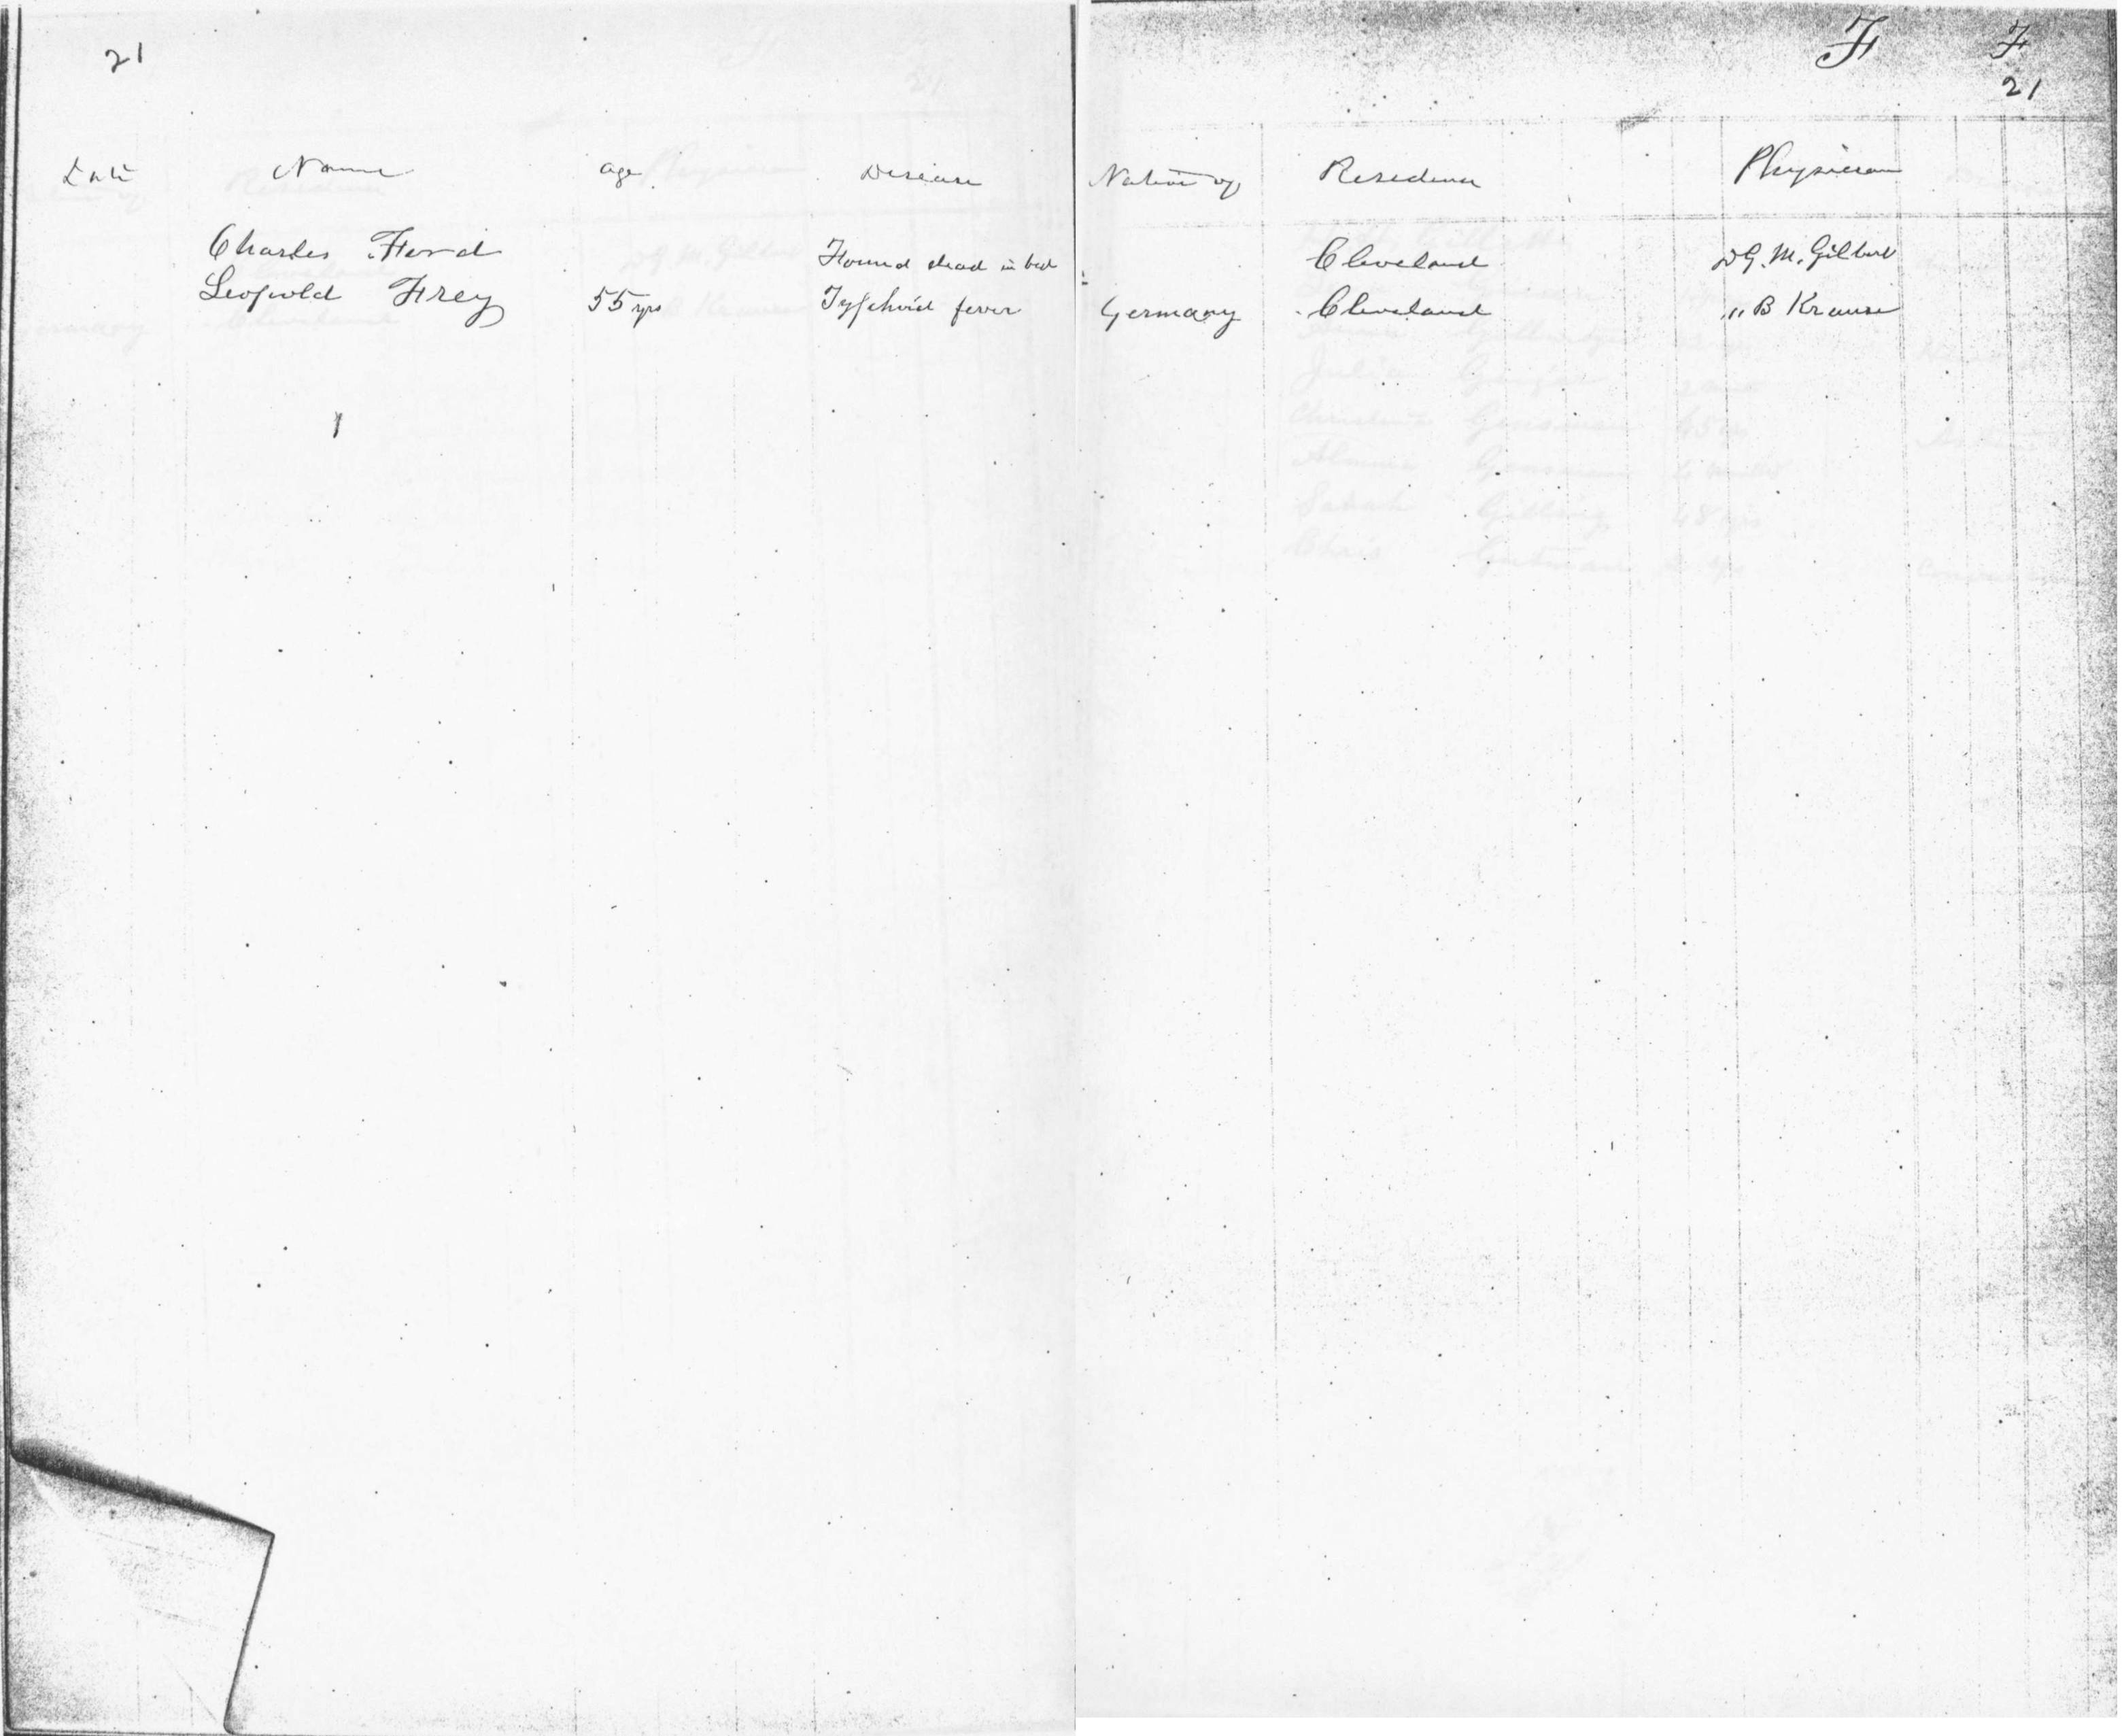 21
F F
21
Date Name age Disease Native of Residence Physician
Charles Ford Found dead in bed Cleveland D G. M. Gilbert
Leopold Frey 55 yrs Typhoid fever Germany Cleveland " B Krause